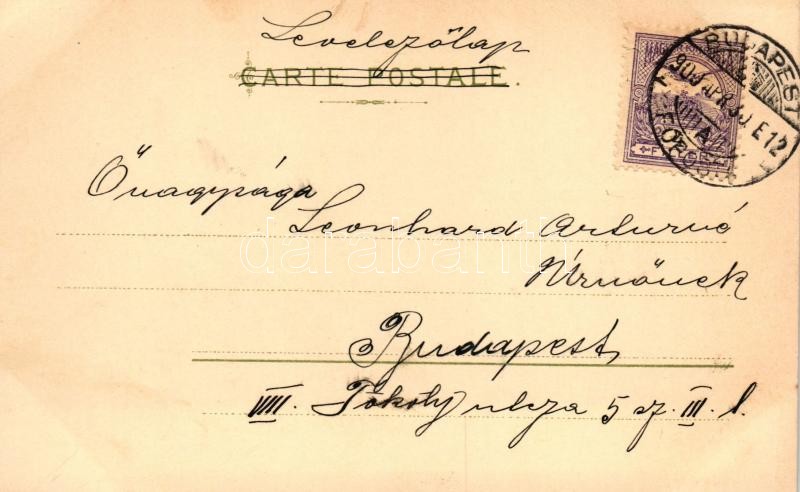 Levelezőlap
CARTE POSTALE.
MAGY
BUDAPEST
Őnagysága
Leonhard Arturné
Úrnőnek
Budapest
VIII. Tököly utcza 5 sz. III. 1.
darabanth